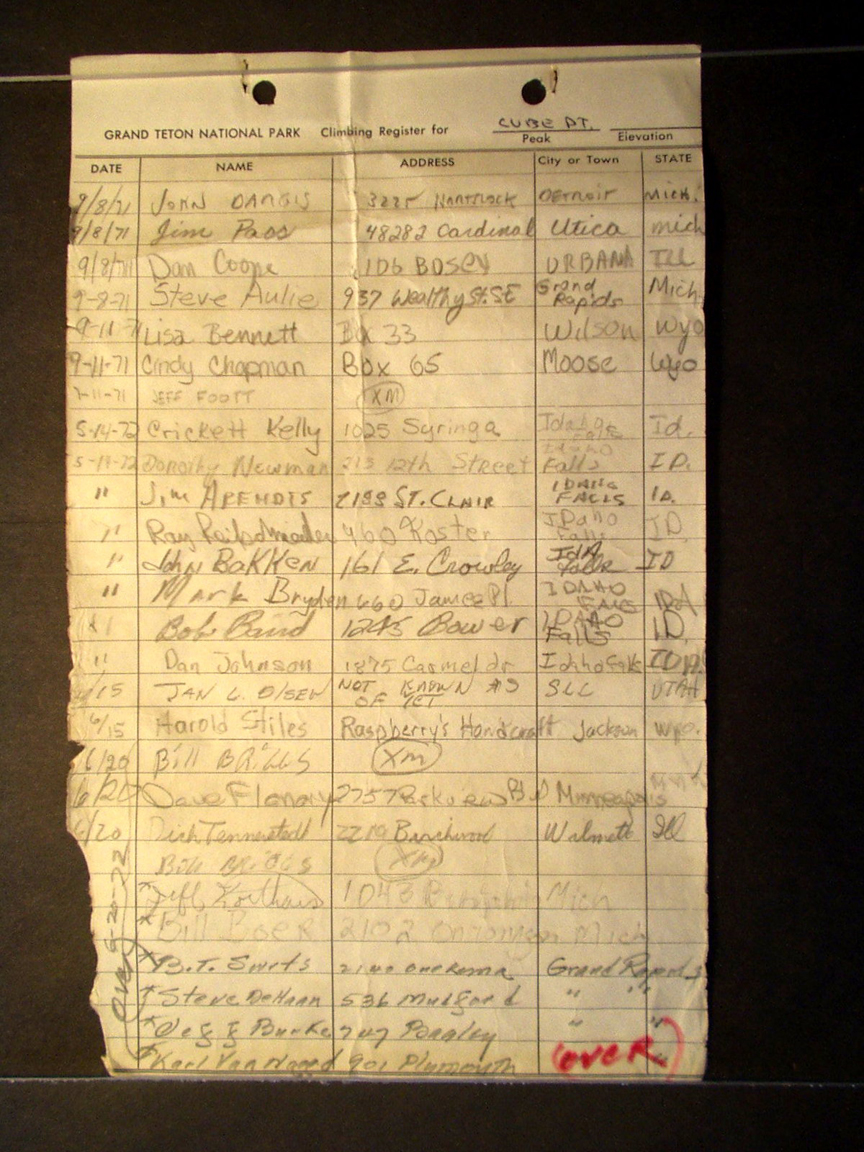 CUBE PT.
GRAND TETON NATIONAL PARK Climbing Register for Peak Elevation
DATE NAME ADDRESS City or Town STATE
9/8/71 JOHN 3225 DETROIT MICH.
9/8/71 Jim Paos 48282 Cardinal Utica mich
9/8/71 Dan Coope 106 BUSEY URBANA ILL
9-8-71 Steve Aulie 937 Wealthy St. SE Grand Rapids Mich
9-11-71 Lisa Bennett Box 33 Wilson Wyo
9-11-71 Cindy Chapman Box 65 Moose Wyo
9-11-71 JEFF FOOTT XM
5-14-72 Crickett Kelly 1025 Syringa Idaho Falls Id.
5-14-72 Dorothy Newman 213 12th Street Idaho Falls ID.
" Jim ARENDTS 2199 ST. CLAIR IDAHO FALLS ID.
" Ray 460 Koster IDaho Falls ID
" John BaKKen 161 E. Crowley Ida Falls ID
" Mark Bryden 660 James Pl. IDAHO FALLS
" Bob Band 1245 Bower IDAHO Falls ID.
" Dan Johnson 1875 Carmel dr Idaho Falls IDA
6/15 JAN L. OLSEN NOT KNOWN AS OF YET SLC UTAH
6/15 Harold Stiles Raspberry's Handcraft Jackson Wyo.
6/20 Bill BRIGGS XM
6/20 Dave Flanary 2757 Parkview Blvd Minneapolis
6/20 Dick Tennerstedt 2219 Birchwood Wilmette Ill
Bill BRIGGS XM
* Jeff 1043 Mich
* Bill Boer 2102 Onaomgan Mich
* B.T. Swets 2140 Onekama Grand Rapids
* Steve DeHaan 536 Mulford " "
* Burke 747 Paisley " "
* Karl Van Noord 901 Plymouth "
over 6-20-72
(OVER)